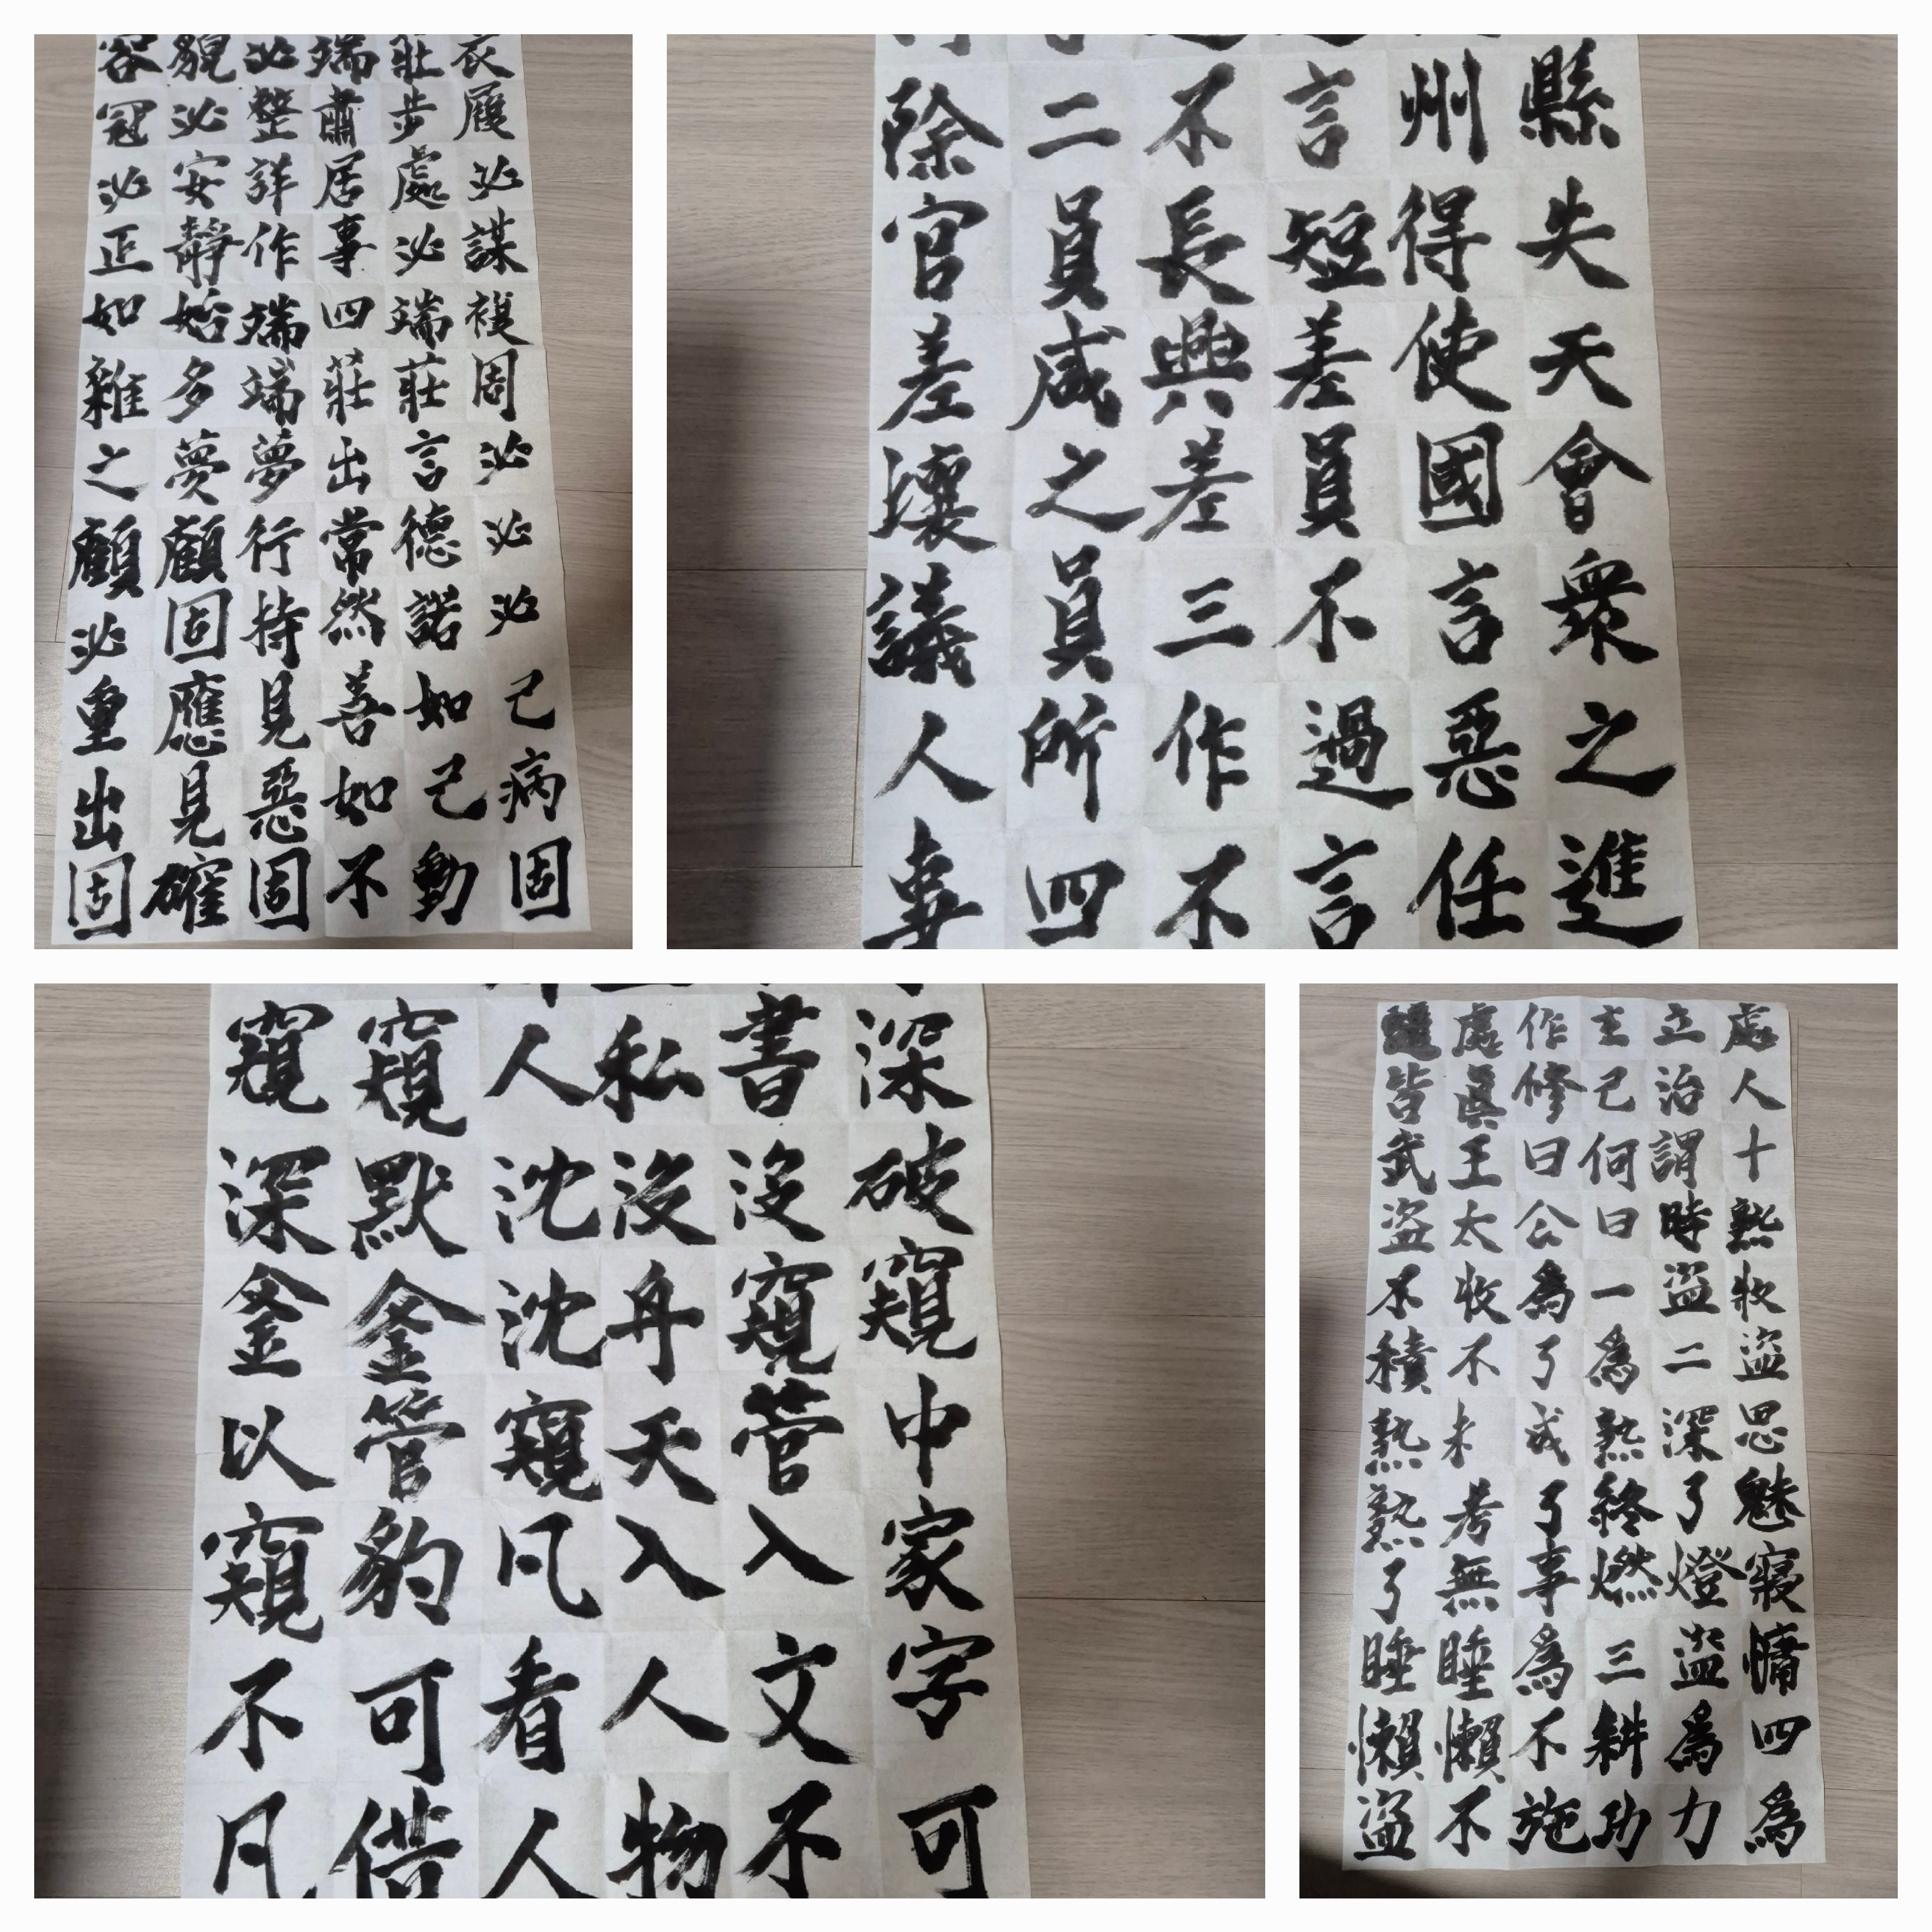 容貌必端莊衣
冠必整肅步履
必安詳居處必
正靜作事必謀
如始端四端複
雜多端莊莊周
之夢夢出言必
顧顧行常德必
必固持然諾必
重應見善如己
出見惡如己病
固確固不動固
除二不言州縣
官員長短得失
差咸興差使天
壤之差員國會
議員三不言衆
人所作過惡之
妻四不言任進
窺窺人私書深
深默沈沒沒破
釜釜沈舟窺窺
以管窺天管中
窺豹凡入入家
不可看人文字
凡借人物不可
隨處作主立處
皆眞修己治人
武王曰何謂十
盜太公曰時熟
不收爲一盜收
積不了爲二盜
熟未成熟深思
熟考了終了魅
了無事燃燈寢
睡睡爲三盜慵
懶懶不耕爲四
盜不施功力爲